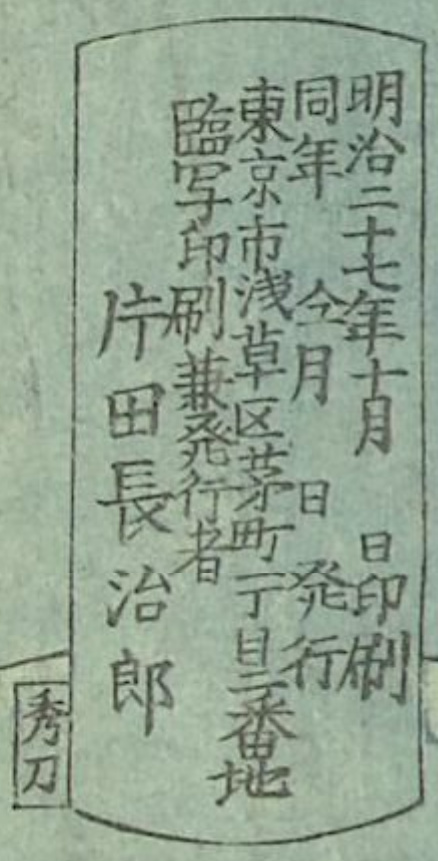 明治二十七年十月　日印刷
同年　仝月　日　発行
東京市浅草区茅町一丁目二番地
臨写印刷兼発行者
片田長治郎
秀刀